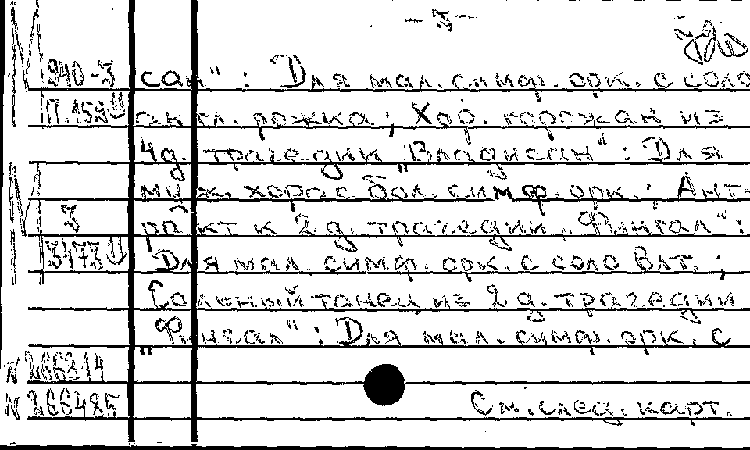 - 3 -
М 940-3 сан": Для мал. симф. орк. с соло
П.159 англ. рожка; Хор. горожан из
4 д. трагедии "Владисан": Для
М муж. хора с бол. симф. орк.; Ант-
3 ракт к 2 д. трагедии "Фингал":
3173 Для мал. симф. орк. с соло влт.;
Сольный танец из 2 д. трагедии
"Фингал": Для мал. симф. орк. с
N 266314
N 266485 См. след. карт.